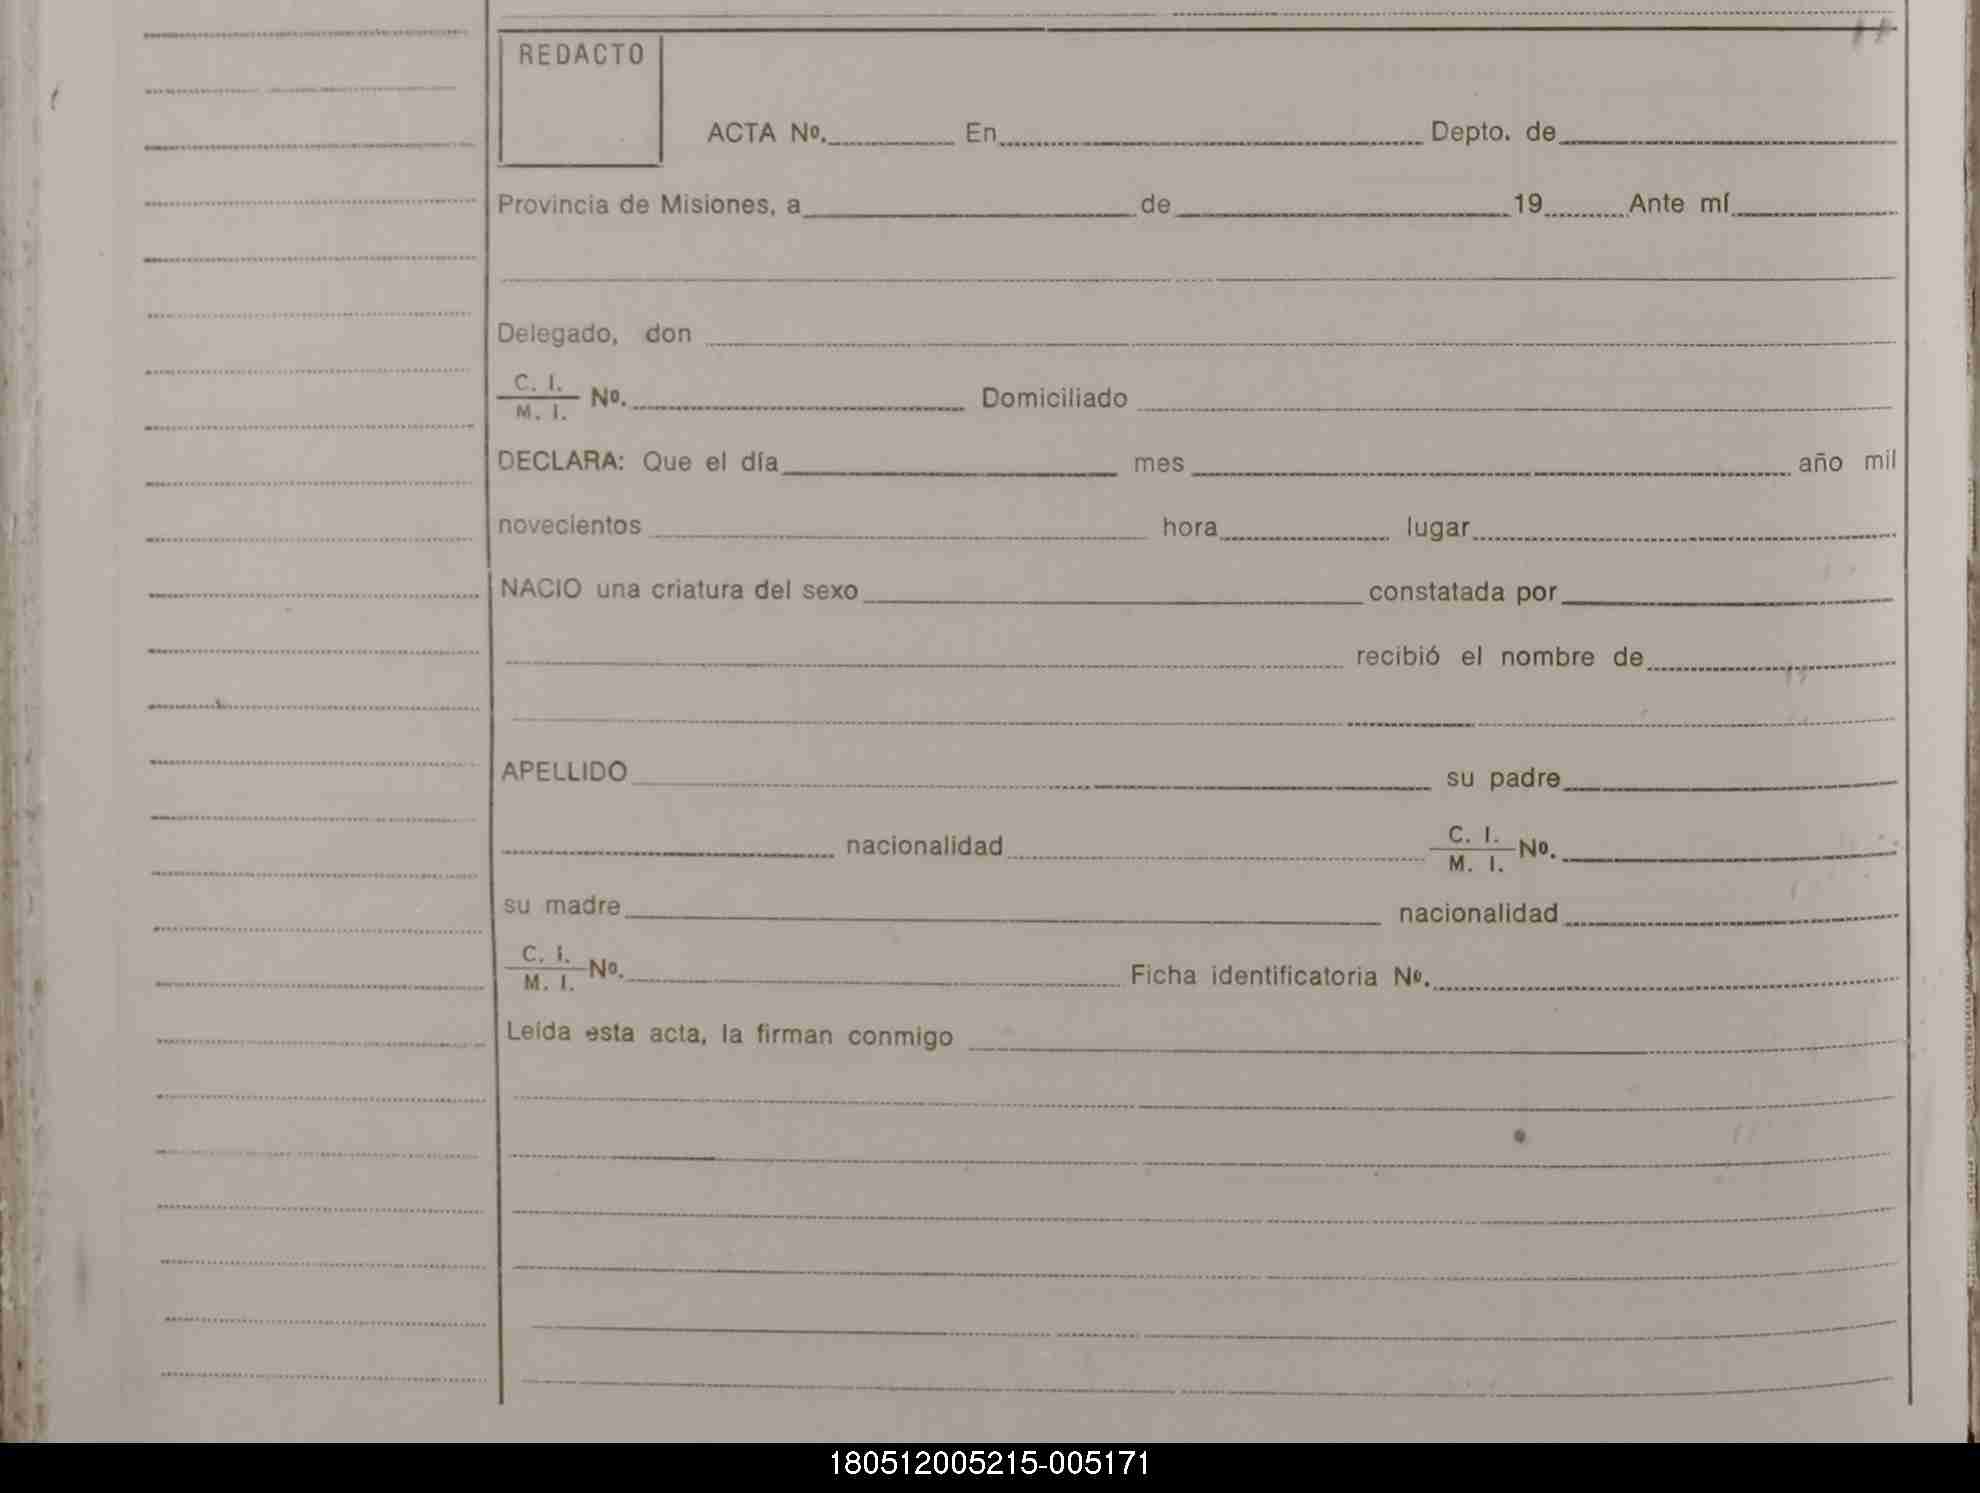 REDACTO
ACTA Nº. En Depto. de
Provincia de Misiones, a de 19 Ante mí
Delegado, don
C. I.
M. I. Nº. Domiciliado
DECLARA: Que el día mes año mil
novecientos hora lugar
NACIO una criatura del sexo constatada por
recibió el nombre de
APELLIDO su padre
nacionalidad C. I.
M. I. Nº.
su madre nacionalidad
C. I.
M. I. Nº. Ficha identificatoria Nº.
Leída esta acta, la firman conmigo
180512005215-005171